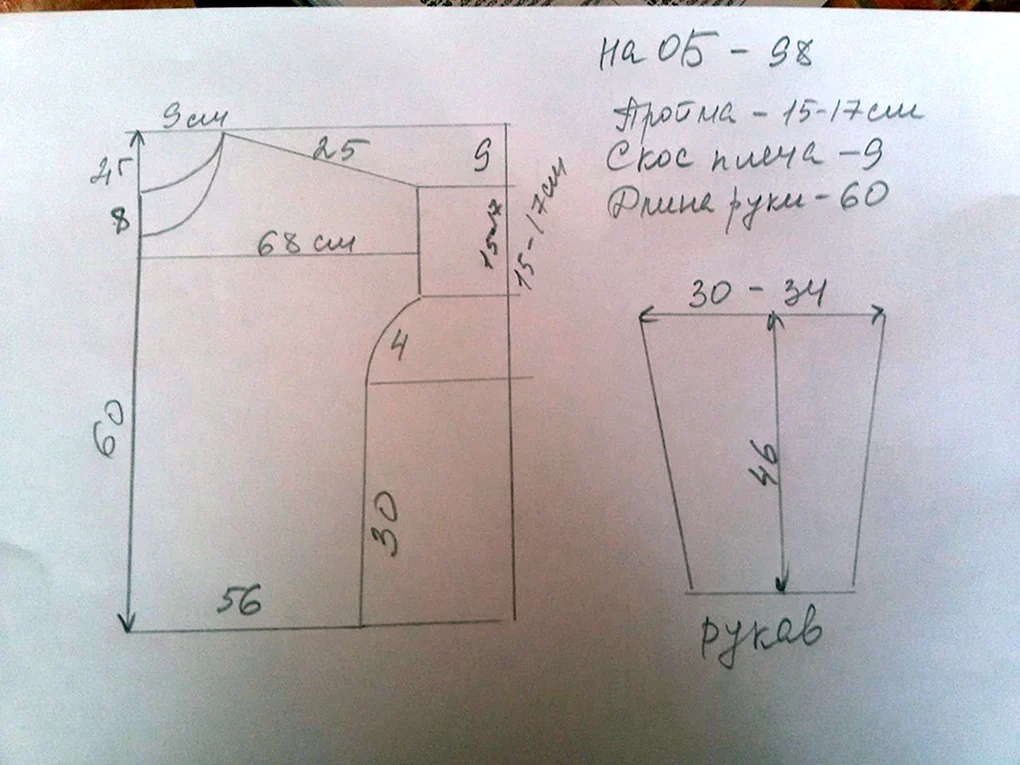 на ОБ - 98
Пройма - 15-17см
Скос плеча - 9
Длина руки - 60
9см
25
9
8
68 см
15-17
15-17см
4
60
30
56
30 - 34
46
рукав